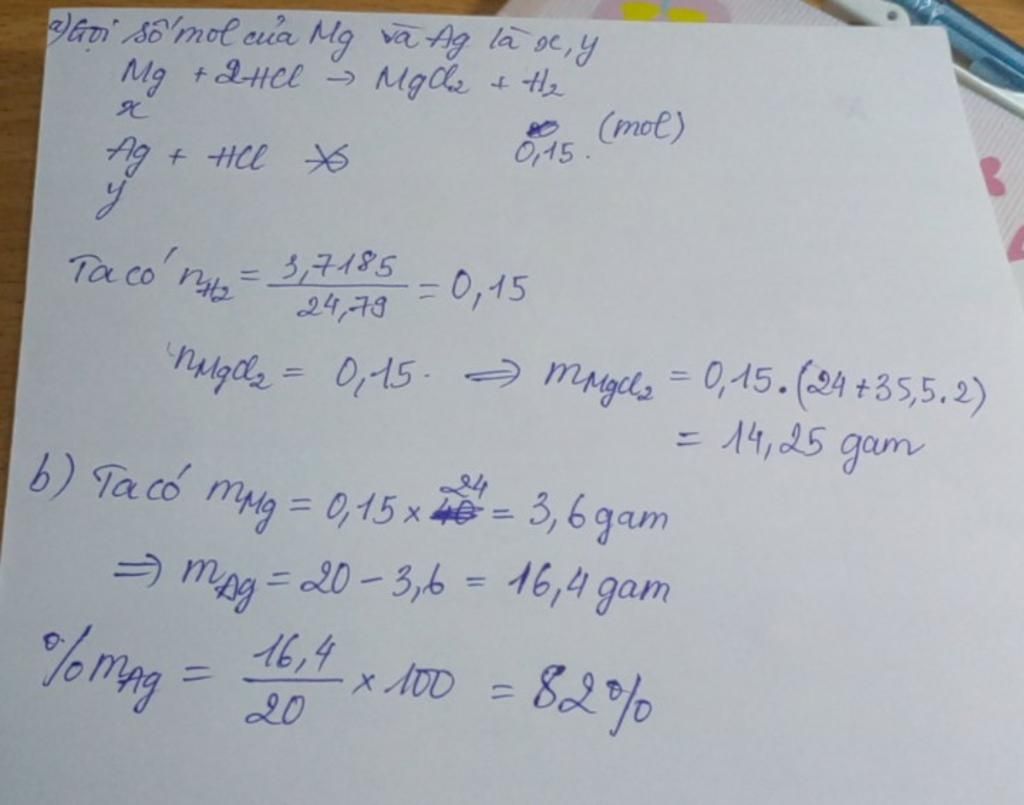 a) Gọi số mol của Mg và Ag là x, y
Mg + 2HCl → MgCl₂ + H₂
x
0,15 (mol)
Ag + HCl
y
Ta có n_H₂ = 3,7185 / 24,79 = 0,15
n_MgCl₂ = 0,15. ⇒ m_MgCl₂ = 0,15.(24+35,5.2)
= 14,25 gam
b) Ta có m_Mg = 0,15 × 24 = 3,6 gam
⇒ m_Ag = 20 - 3,6 = 16,4 gam
%m_Ag = 16,4 / 20 × 100 = 82%